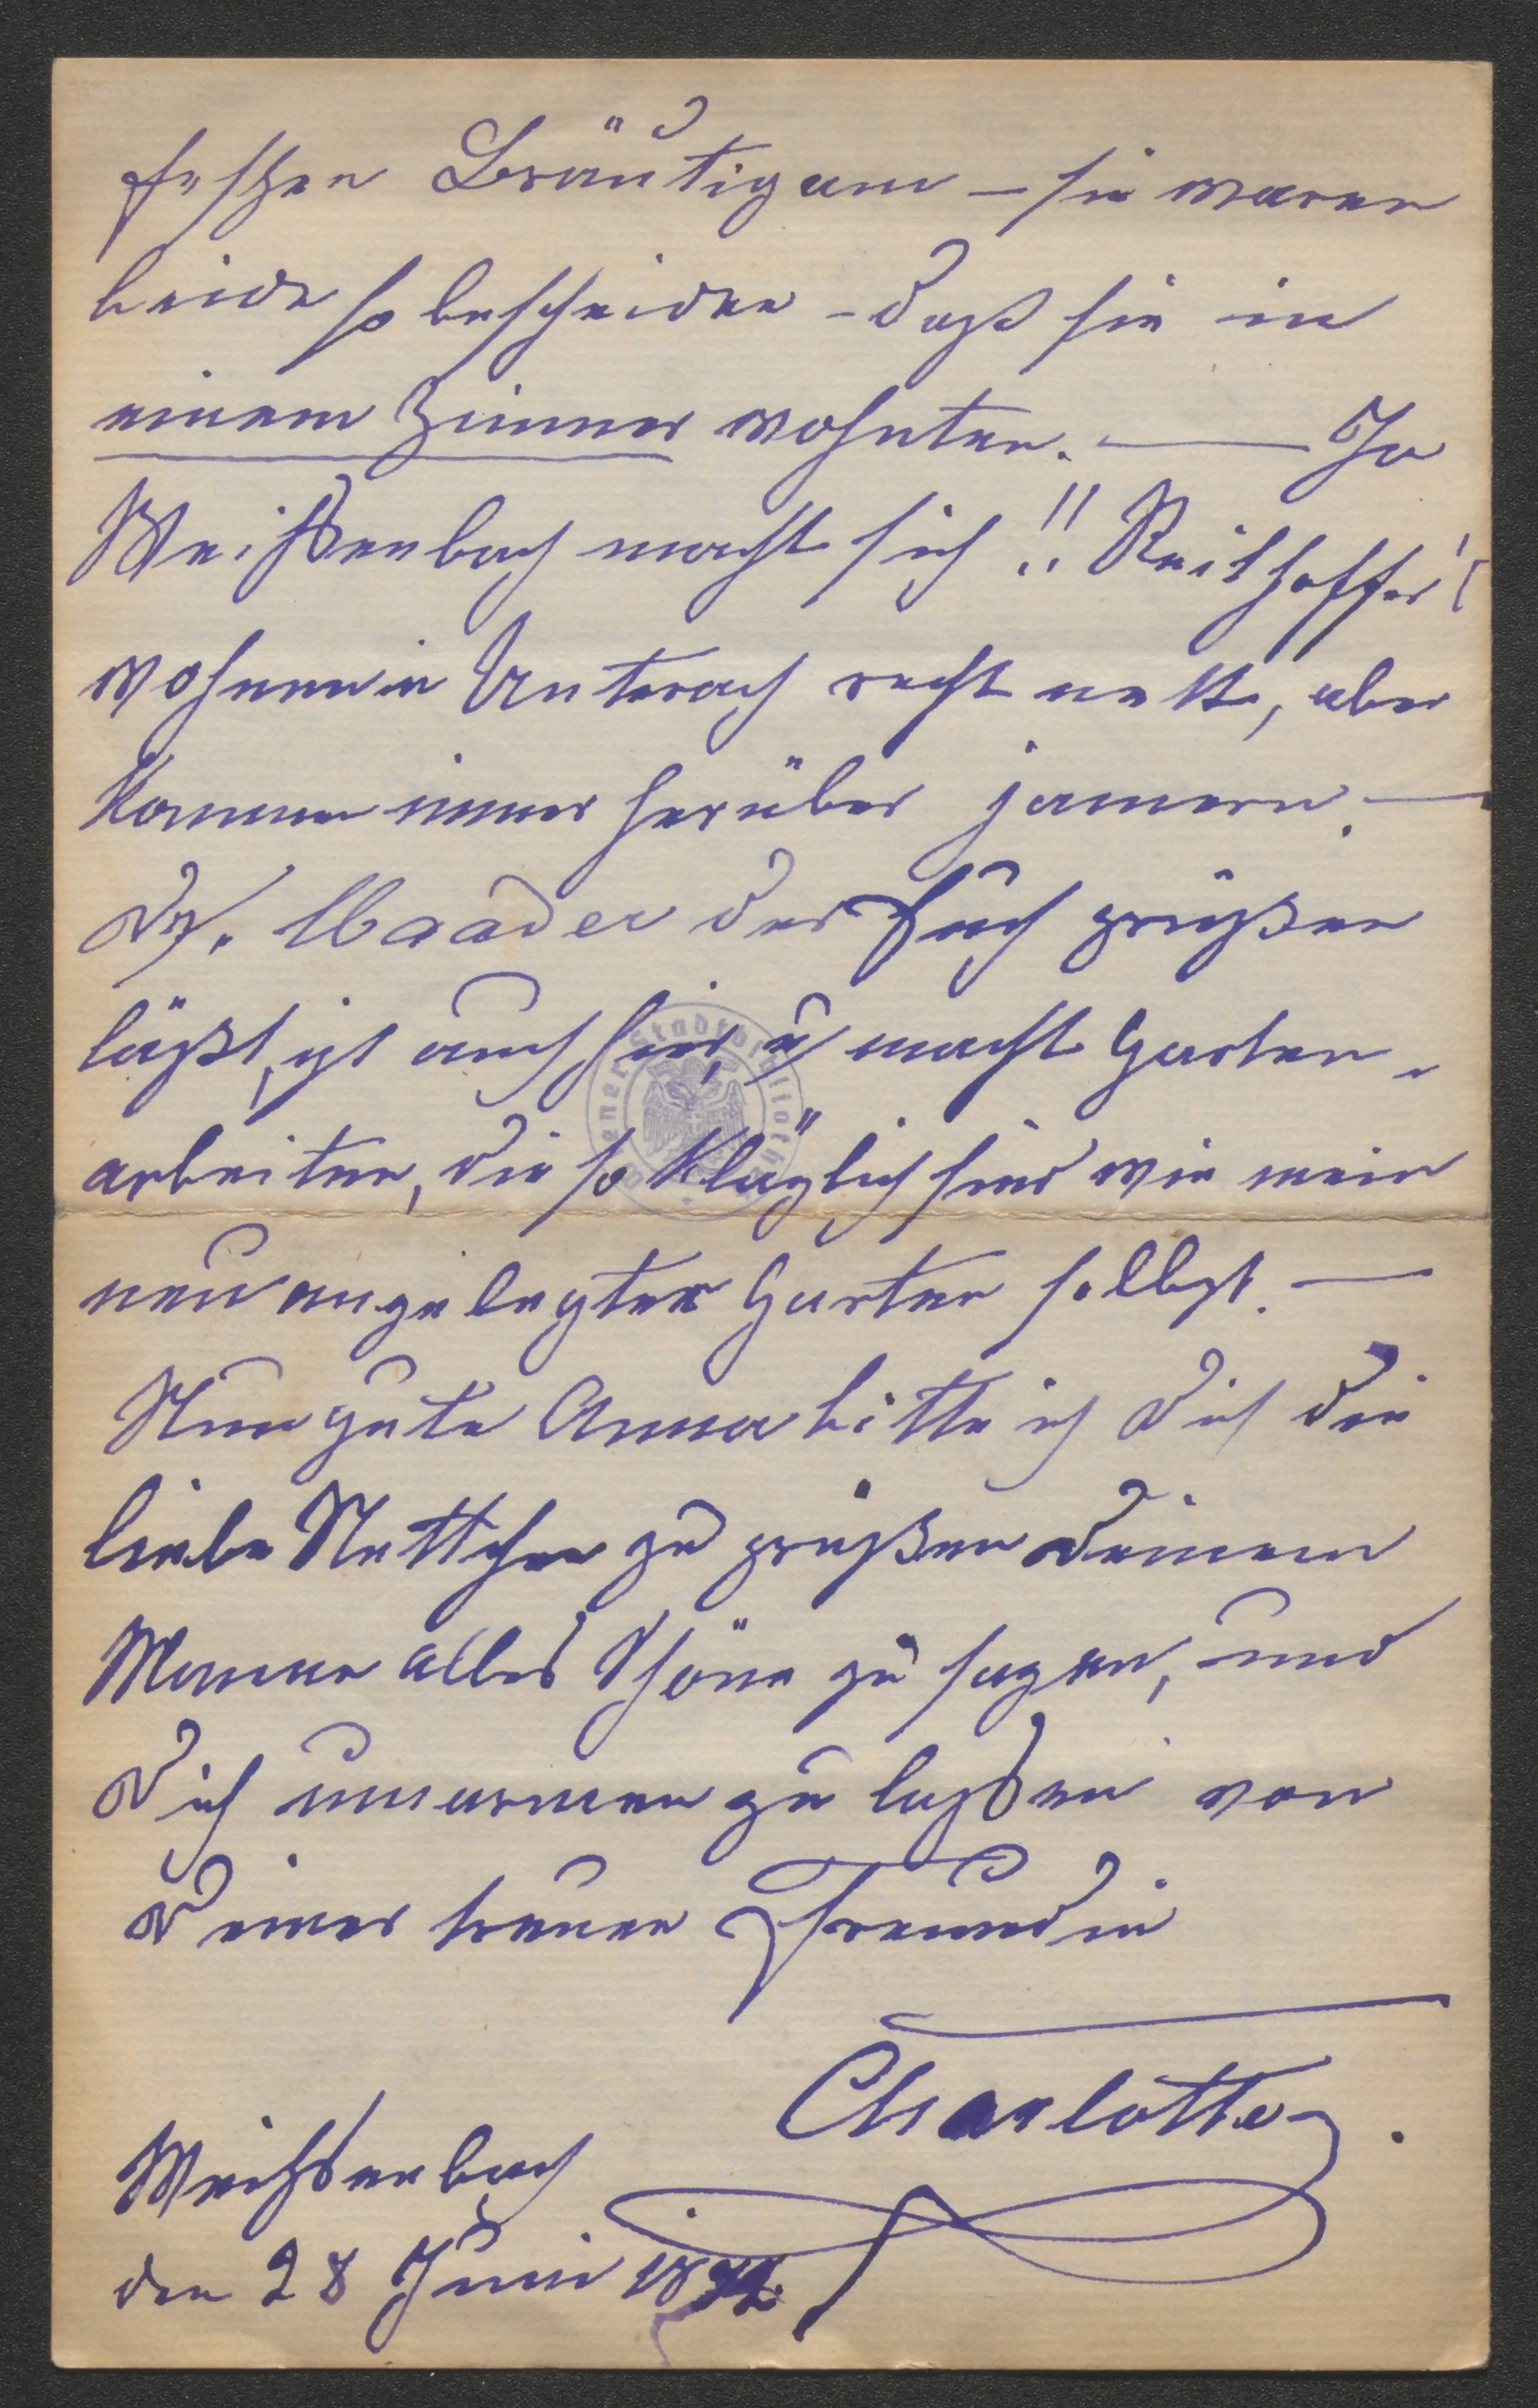 feschen Bräutigam – sie waren
beide so bescheiden – daß sie in
einem Zimmer wohnten. — Ja
Weißenbach macht sich!! Reithoffer's
wohnen in Unterach recht nett, aber
kommen immer herüber jamern. —
Dr. Maader der Euch grüßen
läßt, ist auch hier, u macht Garten-
arbeiten, die so kläglich sind wie mein
neu angelegter Garten selbst. —
Nun gute Anna bitte ich Dich die
liebe Nettchen zu grüßen Deinem
Manne alles Schöne zu sagen, und
Dich umarmen zu lassen von
Deiner treuen Freundin
Charlotte.
Weißenbach
den 28 Juni